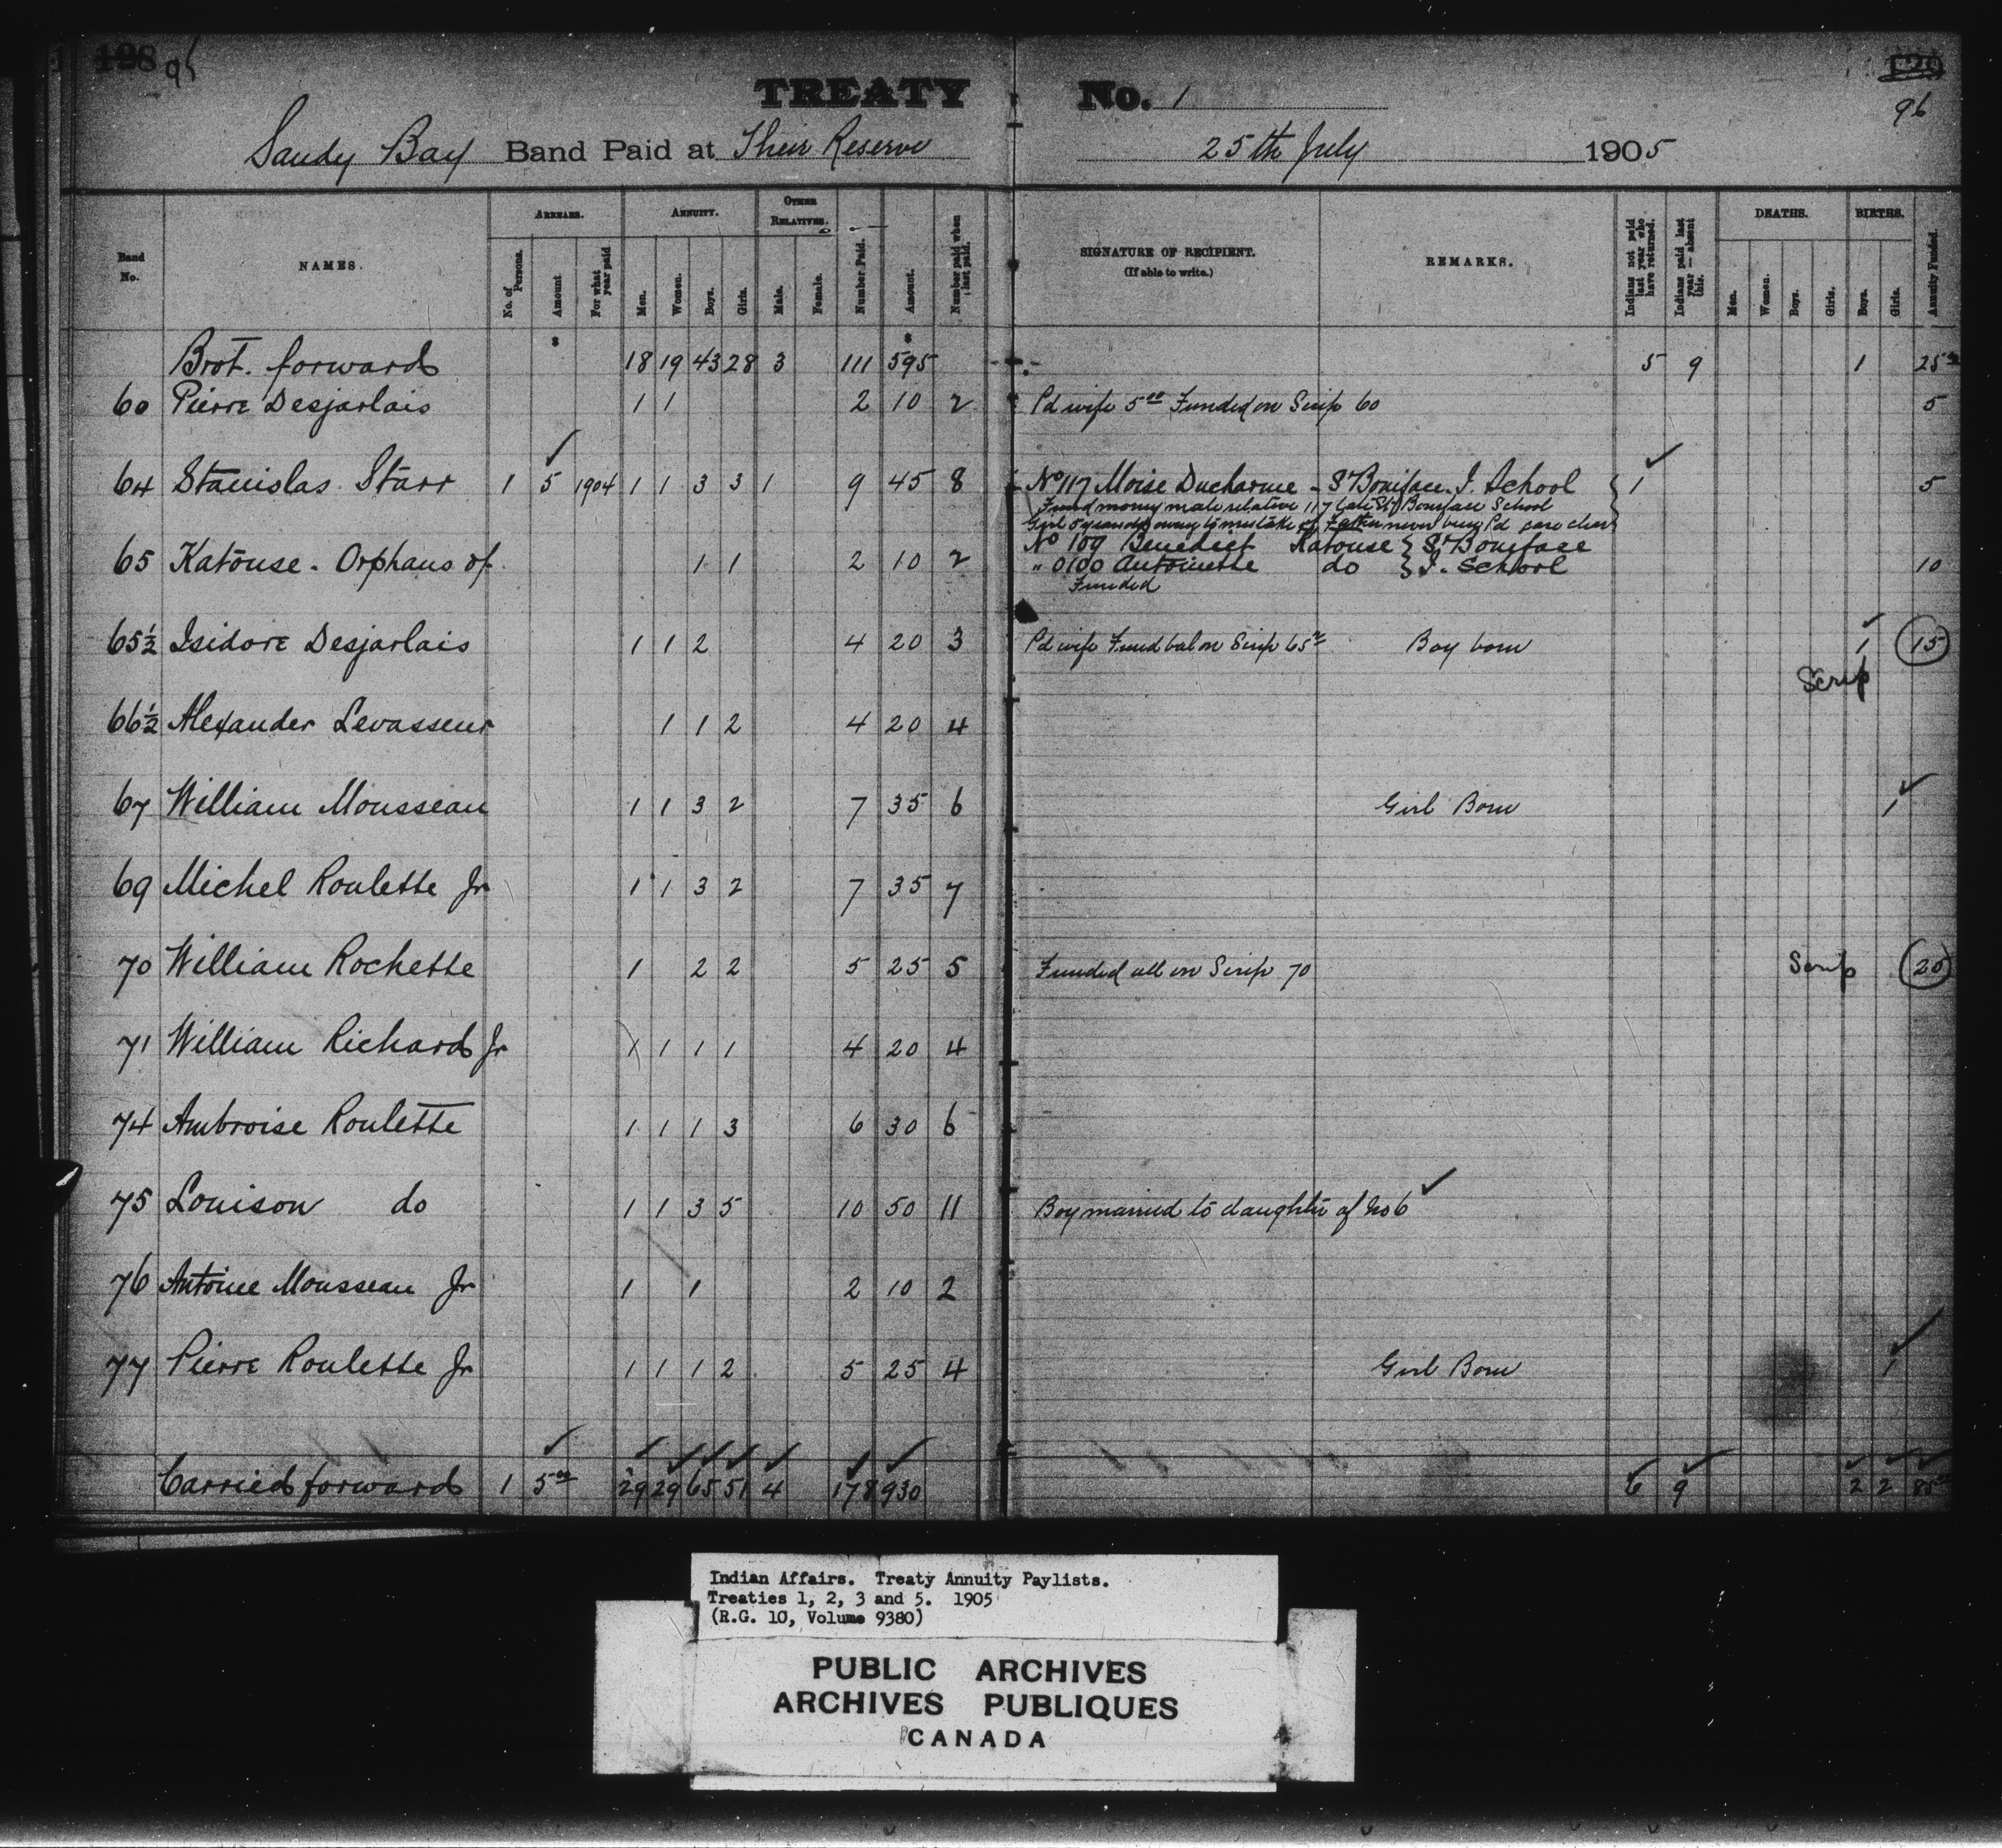 128 95
TREATY No. 1
96
Sandy Bay Band Paid at Their Reserve 25th July 1905
Band No. NAMES. ARREARS. ANNUITY. OTHER RELATIVES. SIGNATURE OF RECIPIENT. (If able to write.) REMARKS. DEATHS. BIRTHS.
No. of Persons. Amount For what year paid Men. Women. Boys. Girls. Male. Female. Number Paid. Amount. Number paid when last paid. Indians not paid last year who have returned. Indians paid last year — absent this. Men. Women. Boys. Girls. Boys. Girls. Annuity Funded.
$ $
Brot. forward 18 19 43 28 3 111 595 5 9 1 25
60 Pierre Desjarlais 1 1 2 10 2 Pd wife 5.00 Funded on Scrip 60 5
64 Stanislas Starr 1 5 1904 1 1 3 3 1 9 45 8 No 117 Moise Ducharme - St Boniface I. School 1 5
Fund money male relative 117 St Boniface School
Girl 5 years old owing to mistake of Father never been Pd
65 Katouse. Orphans of 1 1 2 10 2 No 109 Benedict Katouse } St Boniface
" 0100 Antoinette do } I. School 10
Funded
65½ Isidore Desjarlais 1 1 2 4 20 3 Pd wife Fund bal on Scrip 65 Boy born 1 15
Scrip
66½ Alexander Levasseur 1 1 2 4 20 4
67 William Mousseau 1 1 3 2 7 35 6 Girl Born 1
69 Michel Roulette Jr 1 1 3 2 7 35 7
70 William Rochette 1 2 2 5 25 5 Funded all on Scrip 70 Scrip 20
71 William Richard Jr 1 1 1 1 4 20 4
74 Ambroise Roulette 1 1 1 3 6 30 6
75 Louison do 1 1 3 5 10 50 11 Boy married to daughter of No 6
76 Antoine Mousseau Jr 1 1 2 10 2
77 Pierre Roulette Jr 1 1 1 2 5 25 4 Girl Born 1
Carried forward 1 5.00 29 29 65 51 4 178 930 6 9 2 2 85
Indian Affairs. Treaty Annuity Paylists.
Treaties 1, 2, 3 and 5. 1905
(R.G. 10, Volume 9380)
PUBLIC ARCHIVES
ARCHIVES PUBLIQUES
CANADA